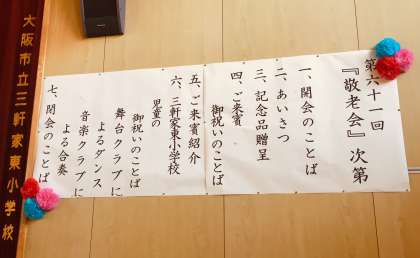 第六十一回
『敬老会』次第
一、開会のことば
二、あいさつ
三、記念品贈呈
四、ご来賓
御祝いのことば
五、ご来賓紹介
六、三軒家東小学校
児童の
御祝いのことば
舞台クラブに
よるダンス
音楽クラブに
よる合奏
七、閉会のことば
大阪市立三軒家東小学校